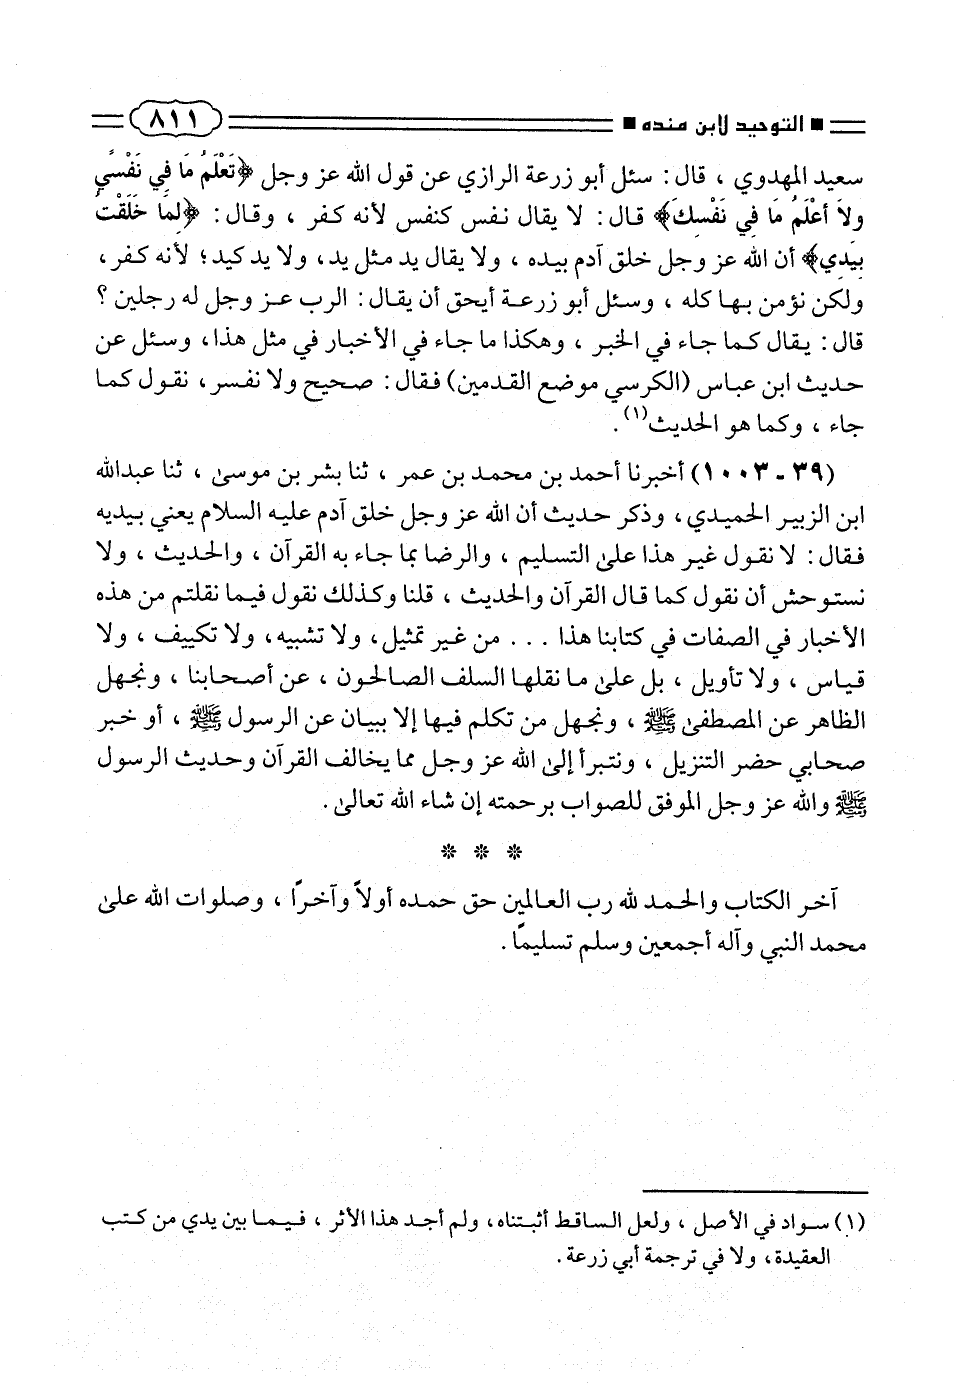 ■ التوحيد لابن منده ■ ٨١١
سعيد المهدوي ، قال : سئل أبو زرعة الرازي عن قول الله عز وجل ﴿تَعْلَمُ مَا فِي نَفْسِي
ولاَ أَعْلَمُ مَا فِي نَفْسِكَ﴾ قال : لا يقال نفس كنفس لأنه كفر ، وقال : ﴿لِمَا خَلَقْتُ
بِيَدِي﴾ أن الله عز وجل خلق آدم بيده ، ولا يقال يد مثل يد، ولا يد كيد؛ لأنه كفر،
ولكن نؤمن بها كله ، وسئل أبو زرعة أيحق أن يقال : الرب عز وجل له رجلين ؟
قال : يقال كما جاء في الخبر ، وهكذا ما جاء في الأخبار في مثل هذا، وسئل عن
حديث ابن عباس (الكرسي موضع القدمين) فقال : صحيح ولا نفسر، نقول كما
جاء ، وكما هو الحديث(١) .
(٣٩ - ١٠٠٣) أخبرنا أحمد بن محمد بن عمر ، ثنا بشر بن موسىٰ ، ثنا عبدالله
ابن الزبير الحميدي، وذكر حديث أن الله عز وجل خلق آدم عليه السلام يعني بيديه
فقال : لا نقول غير هذا علىٰ التسليم ، والرضا بما جاء به القرآن ، والحديث ، ولا
نستوحش أن نقول كما قال القرآن والحديث ، قلنا وكذلك نقول فيما نقلتم من هذه
الأخبار في الصفات في كتابنا هذا . . . من غير تمثيل، ولا تشبيه، ولا تكييف ، ولا
قياس ، ولا تأويل ، بل علىٰ ما نقلها السلف الصالحون ، عن أصحابنا ، ونجهل
الظاهر عن المصطفىٰ ﷺ ، ونجهل من تكلم فيها إلا ببيان عن الرسول ﷺ ، أو خبر
صحابي حضر التنزيل ، ونتبرأ إلىٰ الله عز وجل مما يخالف القرآن وحديث الرسول
ﷺ والله عز وجل الموفق للصواب برحمته إن شاء الله تعالىٰ .
* * *
آخر الكتاب والحمد لله رب العالمين حق حمده أولاً وآخرًا ، وصلوات الله علىٰ
محمد النبي وآله أجمعين وسلم تسليمًا .
(١) سواد في الأصل ، ولعل الساقط أثبتناه، ولم أجد هذا الأثر ، فيما بين يدي من كتب
العقيدة، ولا في ترجمة أبي زرعة .